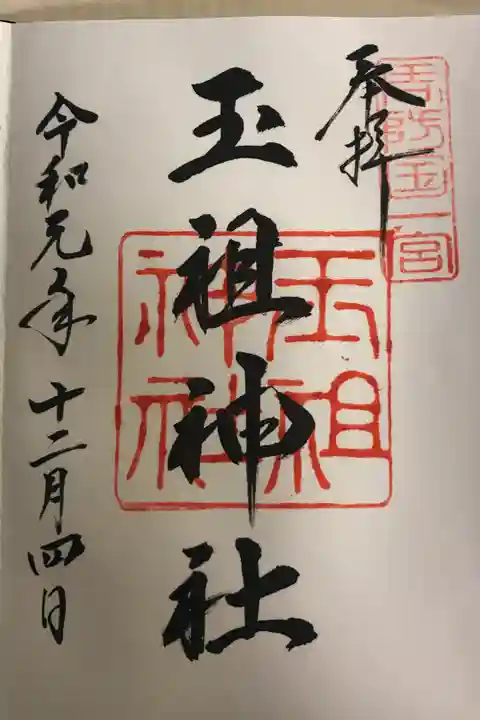 周防国一宮
奉拝
玉祖神社
玉祖
神社
令和元年十二月四日